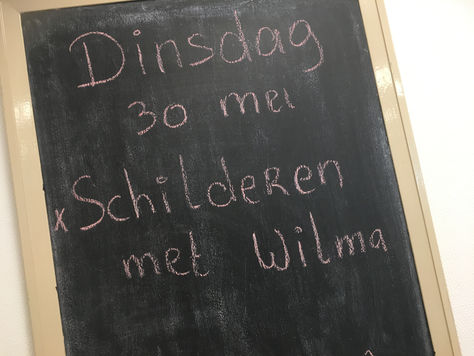 Dinsdag
30 mei
x Schilderen
met Wilma